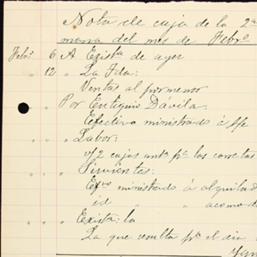 Nota de caja de la 2ª
mana del mes de Febrº
Febº 6 A Existª de ayer
" 12 " La Fda:
Ventas al pormenor
" " Por Eutiquio Dávila:
Efectivo ministrado á
" " " Labor:
2 cajas para las carretas
" " " Sirvientes:
ministrado á alquilad
id " acomod
" " " Existª: la
La que resulta pª el dia